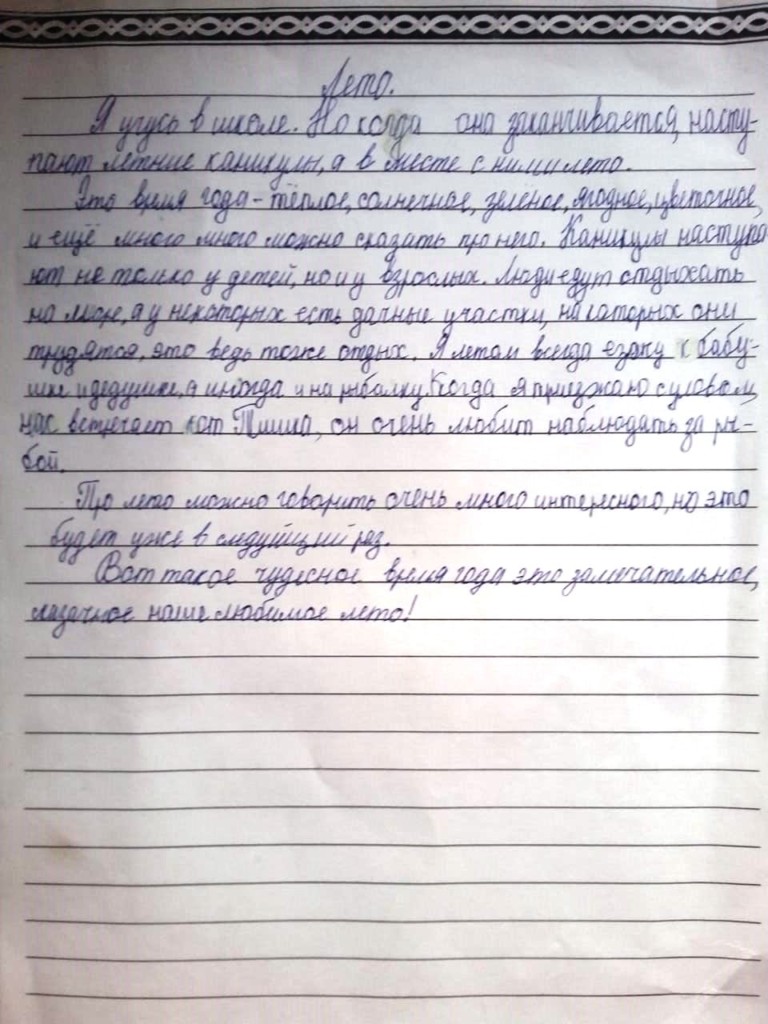 Лето.
Я учусь в школе. Но когда она заканчивается, насту-
пают летние каникулы, а в месте с ними лето.
Это время года - тёплое, солнечное, зеленое, ягодное, цветочное,
и ещё много много можно сказать про него. Каникулы наступа
ют не только у детей, но и у взрослых. Люди едут отдыхать
на море, а у некоторых есть дачные участки, на которых они
трудятся, это ведь тоже отдых. Я летом всегда езжу к бабу-
шке и дедушке, а иногда и на рыбалку. Когда я приезжаю с уловом,
нас встречает кот Тиша, он очень любит наблюдать за ры-
бой.
Про лето можно говорить очень много интересного, но это
будет уже в следующий раз.
Вот такое чудесное время года это замечательное,
сказачное наше любимое лето!